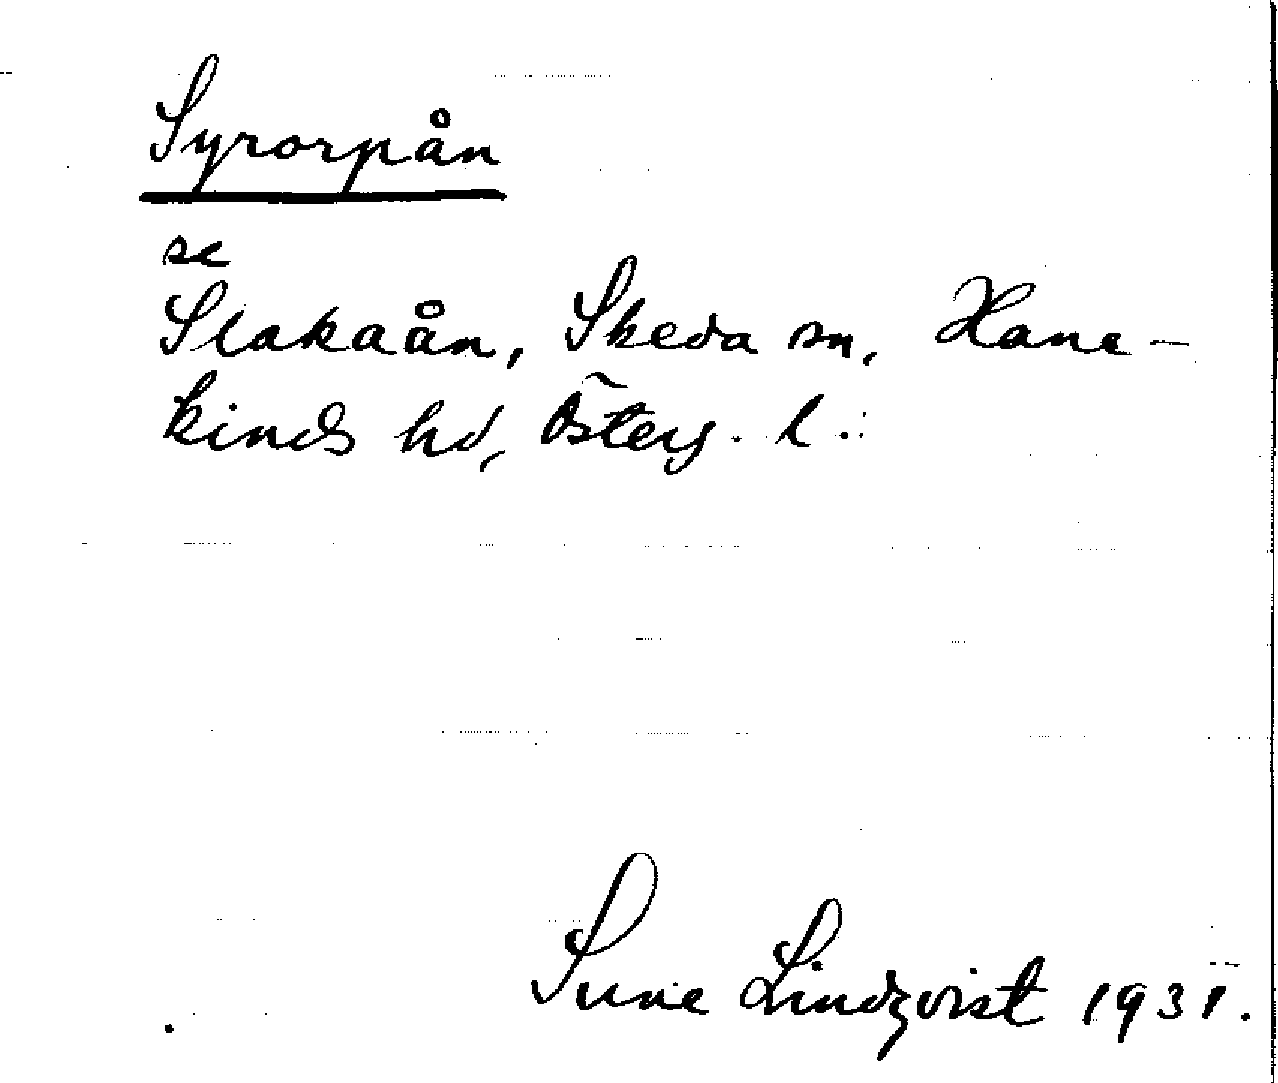 Syrorpån
se
Slakaån, Skeda sn, Hane-
kinds hd, Österg. l.
Sune Lindqvist 1931.